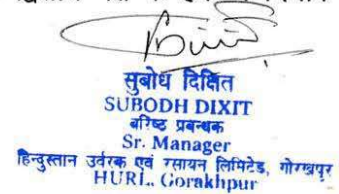 सुबोध दिक्षित
SUBODH DIXIT
वरिष्ठ प्रबन्धक
Sr. Manager
हिन्दुस्तान उर्वरक एवं रसायन लिमिटेड, गोरखपुर
HURL, Gorakhpur